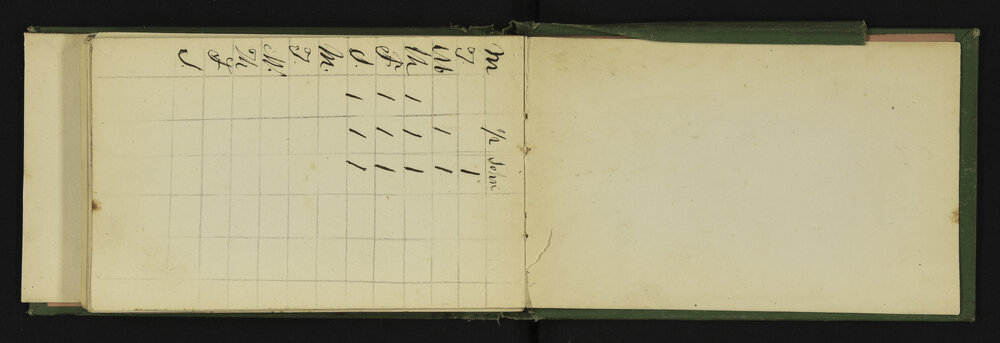 M ½ John
T 1
W 1 1
Th 1 1 1
F. 1 1 1
S. 1 1 1
M.
T.
W.
Th
F
S.